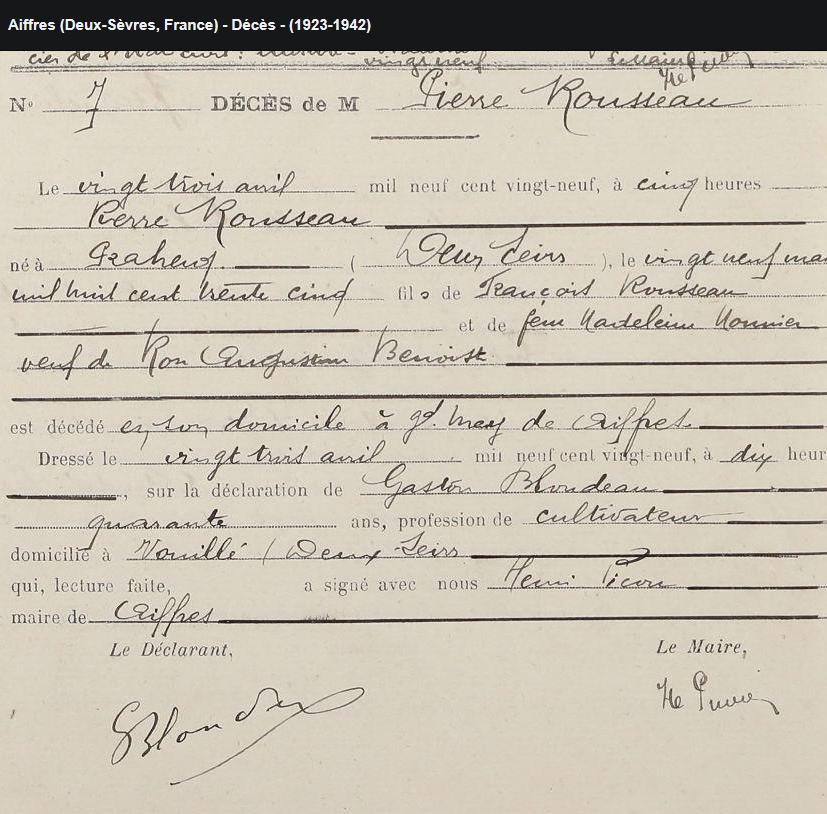 Aiffres (Deux-Sèvres, France) - Décès - (1923-1942)
vingt neuf
No 7 DÉCÈS de M Pierre Rousseau
Le vingt trois avril mil neuf cent vingt-neuf, à cinq heures
Pierre Rousseau
né à Prahecq (Deux Seivres), le vingt neuf mai
mil huit cent trente cinq fils de François Rousseau
et de feue Madeleine Monnier
veuf de Rose Augustine Benoist
est décédé en son domicile à gd. May de Aiffres
Dressé le vingt trois avril mil neuf cent vingt-neuf, à dix heur
, sur la déclaration de Gaston Blondeau
quarante ans, profession de cultivateur
domicilié à Vouillé (Deux-Seivres
qui, lecture faite, a signé avec nous Henri Picon
maire de Aiffres
Le Déclarant, Le Maire,
GBlondeau